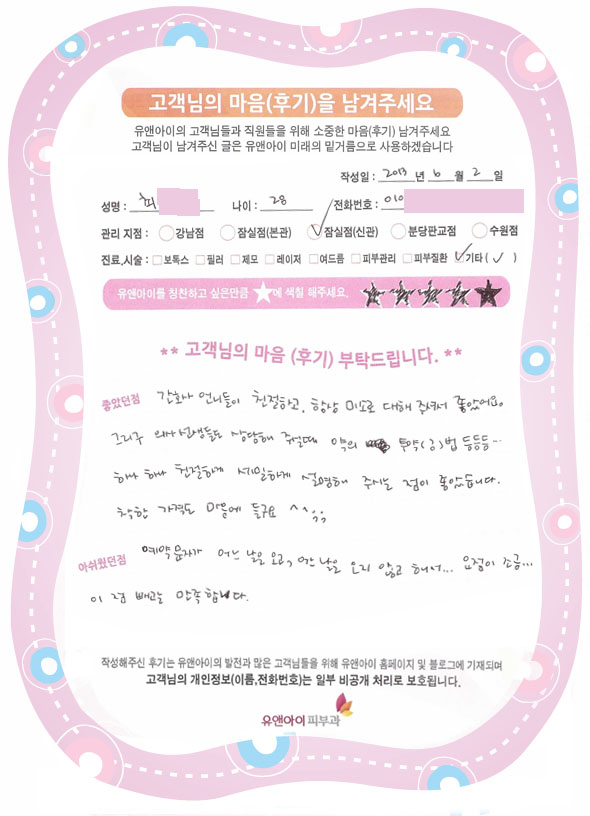 고객님의 마음(후기)을 남겨주세요
유앤아이의 고객님들과 직원들을 위해 소중한 마음(후기) 남겨주세요
고객님이 남겨주신 글은 유앤아이 미래의 밑거름으로 사용하겠습니다
작성일 : 2013 년 6 월 2 일
성명 : 피 나이 : 28 전화번호 : 010
관리 지점 : 강남점 잠실점(본관) 잠실점(신관) 분당판교점 수원점
진료,시술 : 보톡스 필러 제모 레이저 여드름 피부관리 피부질환 기타 ( ✓ )
유앤아이를 칭찬하고 싶은만큼 ★에 색칠 해주세요. ★★★★★
** 고객님의 마음 (후기) 부탁드립니다. **
좋았던점 간호사 언니들이 친절하고, 항상 미소로 대해 주셔서 좋았어요.
그리구 의사선생님들도 상담해 주실때 약의 투약(용)법 등등등...
하나 하나 친절하게 세밀하게 설명해 주시는 점이 좋았습니다.
착한 가격도 마음에 들구요 ^^;;
아쉬웠던점 예약문자가 어느 날은 오고, 어느 날은 오지 않고 해서... 요점이 조금...
이 점 빼고는 만족합니다.
작성해주신 후기는 유앤아이의 발전과 많은 고객님들을 위해 유앤아이 홈페이지 및 블로그에 기재되며
고객님의 개인정보(이름,전화번호)는 일부 비공개 처리로 보호됩니다.
유앤아이피부과